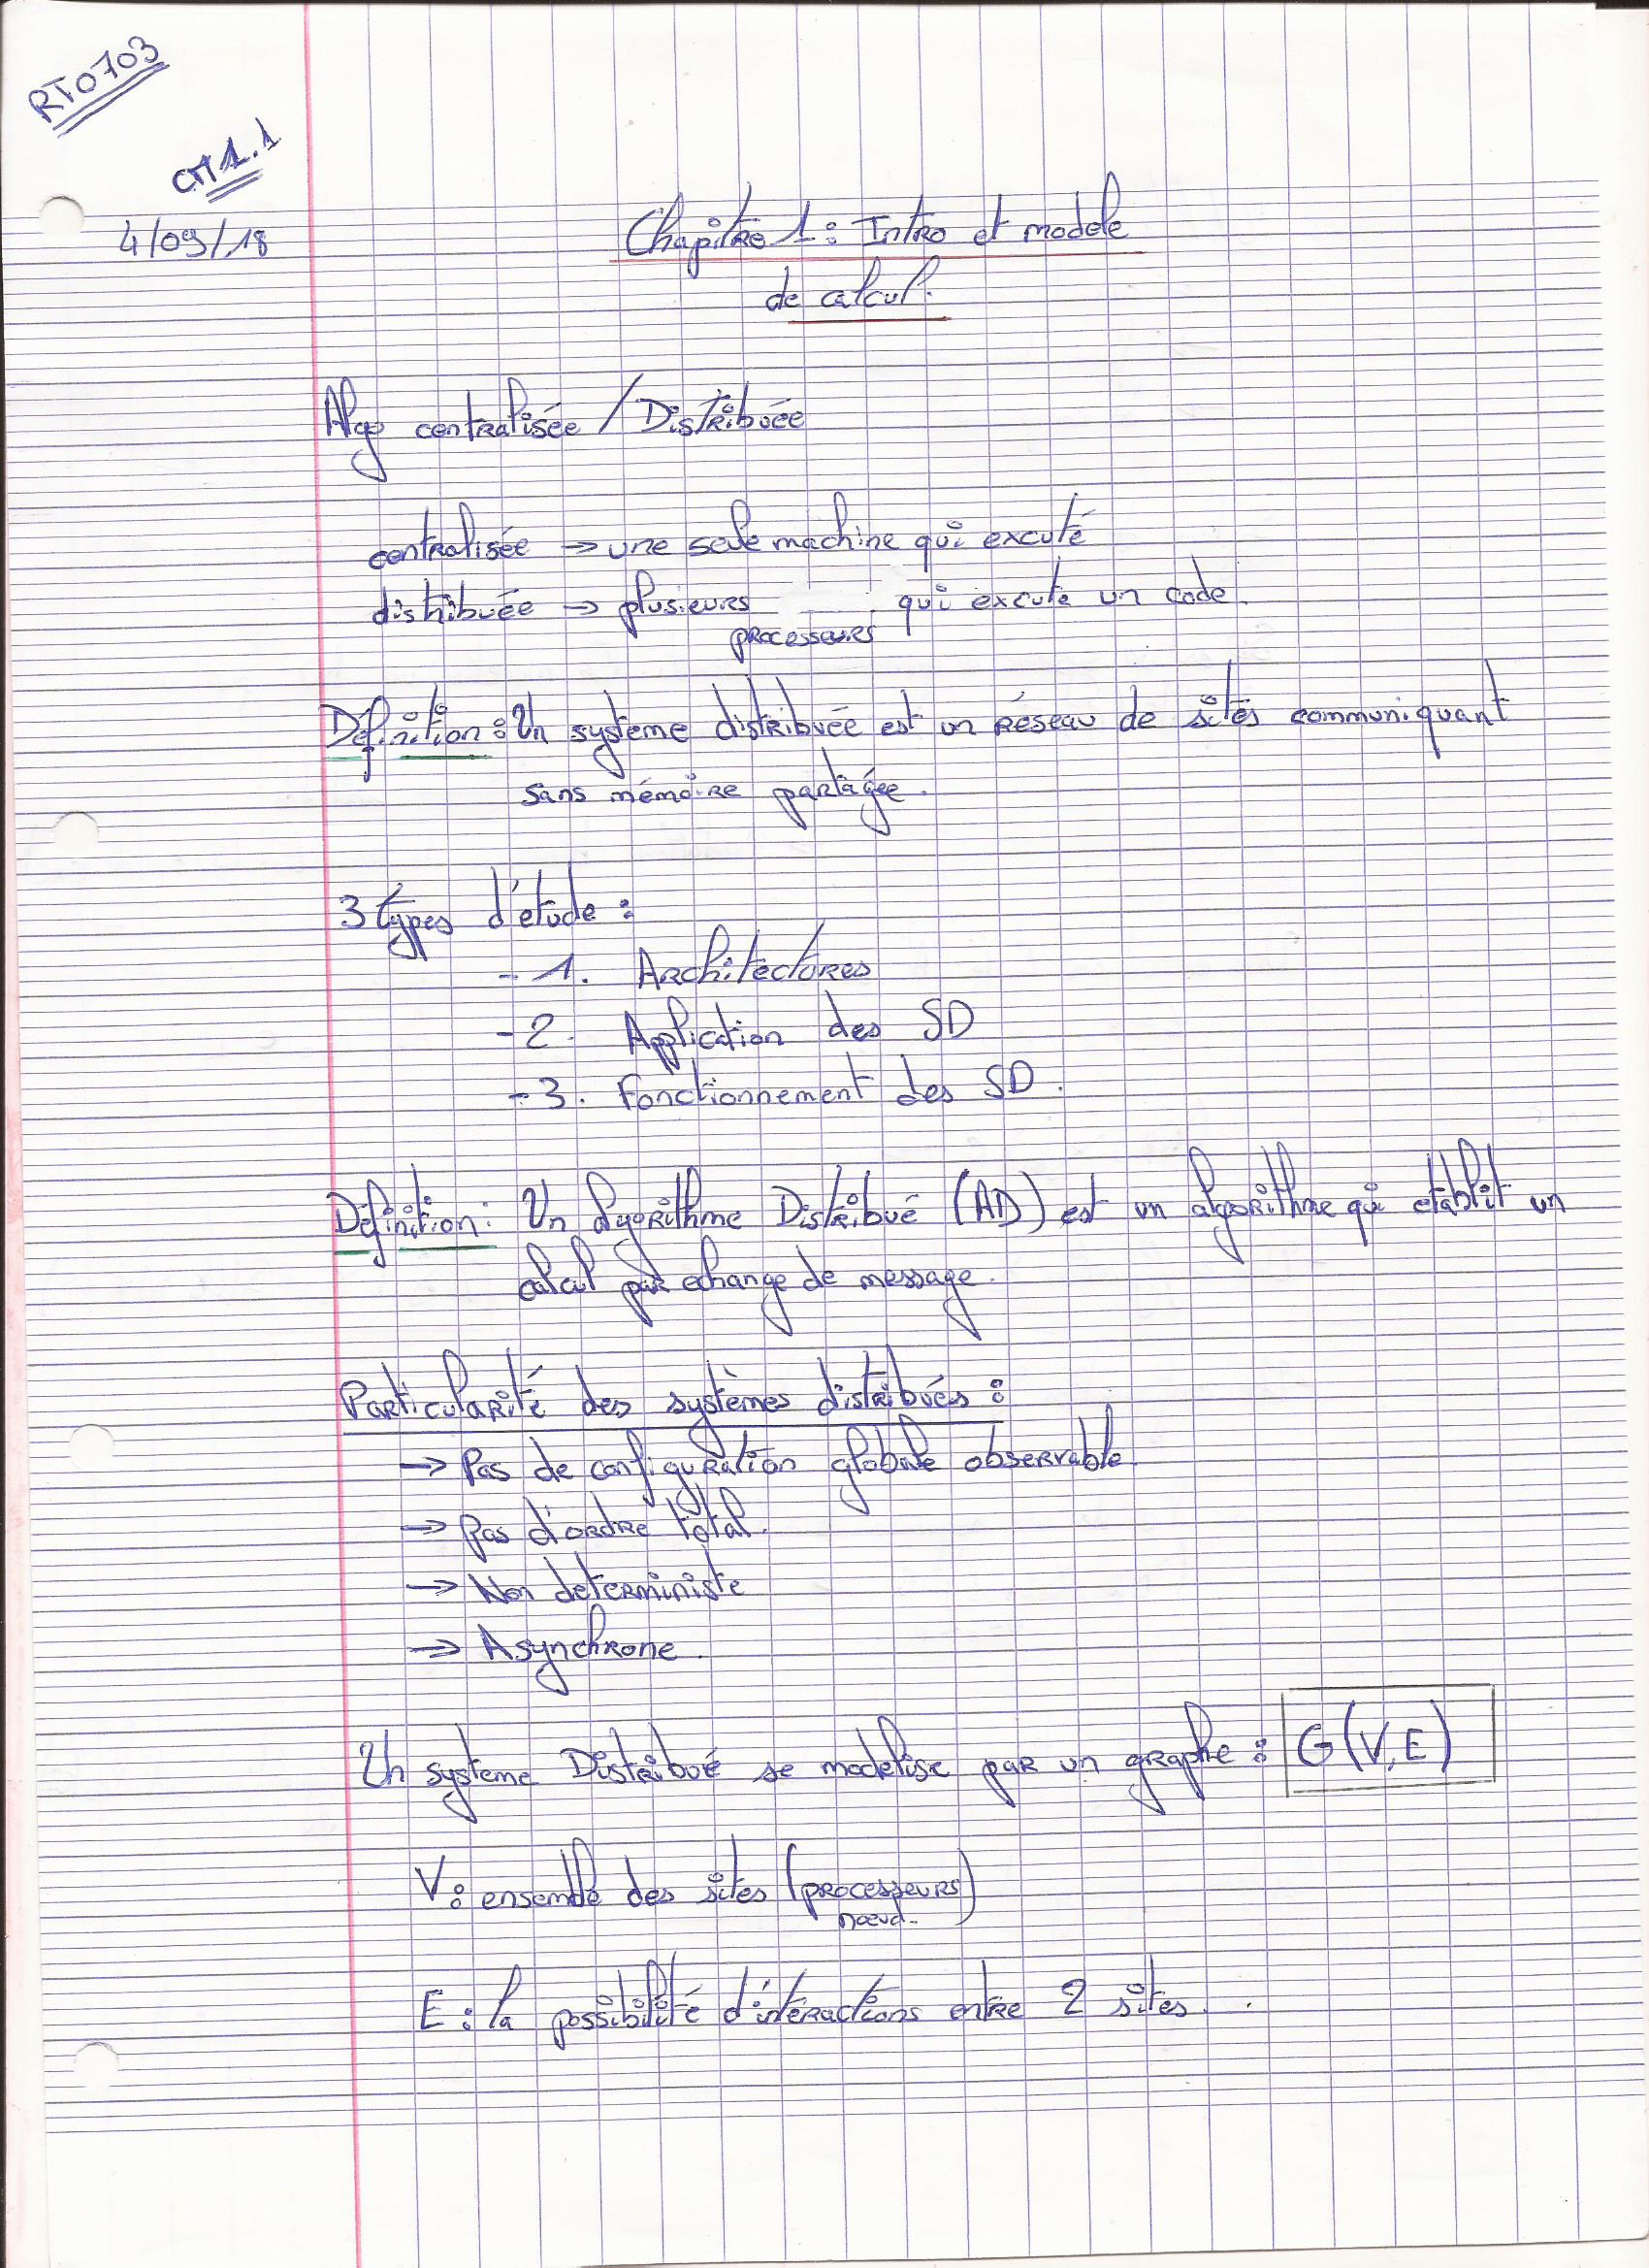 RT0703
CM1.1
4/09/18
Chapitre 1 : Intro et modele
de calcul.
Algo centralisée / Distribuée
centralisée → une seule machine qui excuté
distribuée → plusieurs qui excute un code.
processeurs
Définition : Un systeme distribuée est un réseau de sites communiquant
sans mémoire partagée.
3 types d'étude :
- 1. Architectures
- 2. Application des SD
- 3. Fonctionnement des SD.
Définition : Un Algorithme Distribué (AD) est un algorithme qui etablit un
calcul par echange de message.
Particularité des systèmes distribués :
→ Pas de configuration globale observable.
→ Pas d'ordre total.
→ Non deterministe
→ Asynchrone.
Un systeme Distribué se modelise par un graphe : G(V,E)
V : ensemble des sites (processeurs)
nœud.
E : la possibilité d'intéractions entre 2 sites.